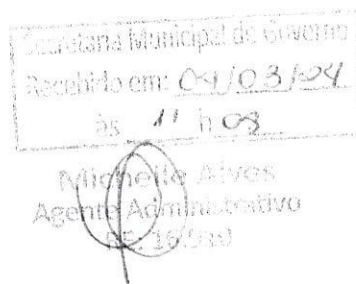 Secretaria Municipal de Governo
Recebido em: 04/03/04
às 11 h 09
Michelle Alves
Agente Administrativo